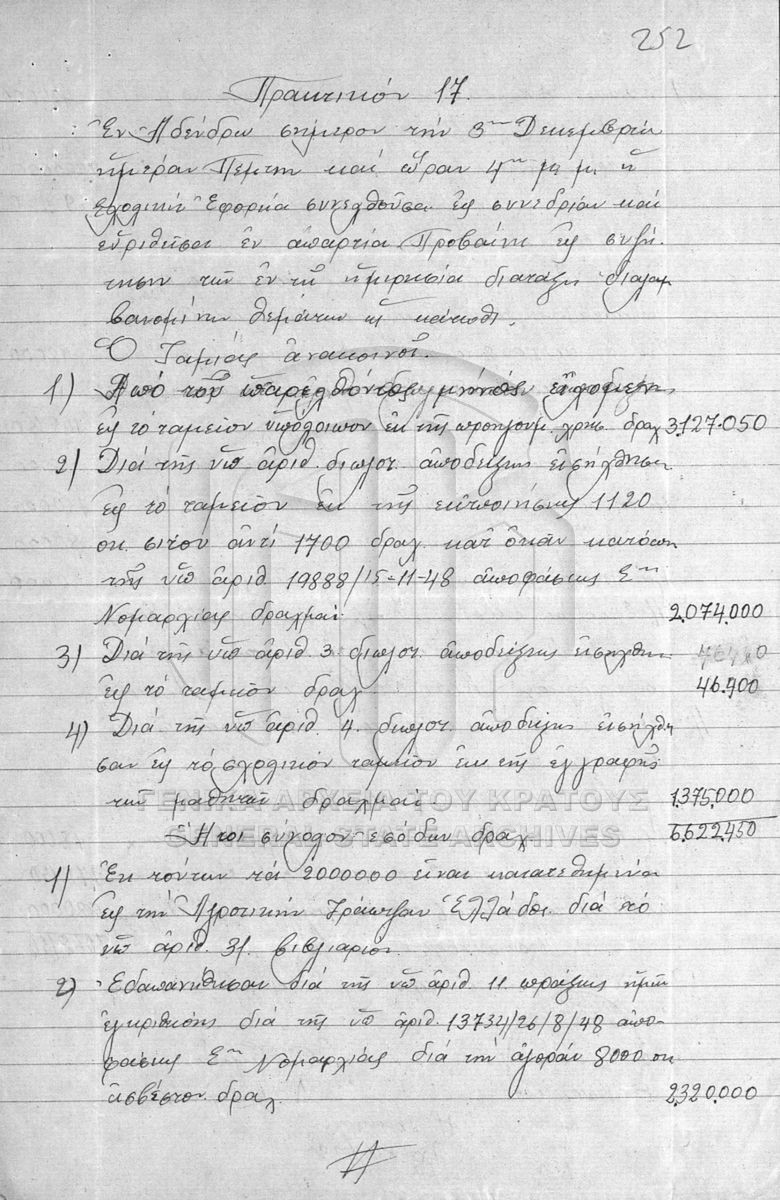 252
Πρακτικόν 17.
Ἐν Ἀδένδρω σήμερον τήν 3ην Δεκεμβρίου
ἡμέραν Πέμπτη καί ὥραν 4ην μ.μ. ἡ
Σχολική Ἐφορεία συνελθοῦσα εἰς συνεδρίαν καί
εὑρεθεῖσα ἐν ἀπαρτία Προβαίνει εἰς συζή-
τησιν τῶν ἐν τῇ ἡμερησία διατάξει διαλαμ
βανομένων θεμάτων ὡς κάτωθι.
Ὁ Ταμίας ἀνακοινοῖ.
1) Ἀπό τοῦ παρελθόντος
εἰς τό ταμεῖον ὑπόλοιπον ἐκ τῆς προηγουμ. χρησ. δραχ 3.127.050
2) Διά τῆς ὑπ ἀριθ. διπλοτ. ἀποδείξεως εἰσήχθησαν
εἰς τό ταμεῖον ἐκ τῆς ἐκποιήσεως 1120
οκ. σίτου ἀντί 1700 δραχ. κατ ὀκᾶν κατόπιν
τῆς ὑπ ἀριθ 19888/15-11-48 ἀποφάσεως Σης
Νομαρχίας δραχμαί 2.074.000
3) Διά τῆς ὑπ ἀριθ. 3. διπλοτ. ἀποδείξεως εἰσήχθη
εἰς τό ταμεῖον δραχ 46.400
4) Διά τῆς ὑπ ἀριθ. 4. διπλοτ. ἀποδείξεως εἰσήχθη
σαν εἰς τό σχολικόν ταμεῖον ἐκ τῆς ἐγγραφῆς
τῶν μαθητῶν δραχμαί 1.375.000
ΓΕΝΙΚΑ ΑΡΧΕΙΑ ΤΟΥ ΚΡΑΤΟΥΣ
GENERAL STATE ARCHIVES
Ἤτοι σύνολον ἐσόδων δραχ 6.622.450
1) Ἐκ τούτων τά 2000000 εἶναι κατατεθημένα
εἰς τήν Ἀγροτικήν Τράπεζαν Ἑλλάδος διά τό
ὑπ ἀριθ. 31. βιβλιαρίου
2) Ἐδαπανήθησαν διά τῆς ὑπ ἀριθ. 11 πράξεως ἡμῶν
ἐγκριθείσης διά τῆς ὑπ ἀριθ. 13734/26/8/48 ἀπο-
φάσεως Σης Νομαρχίας διά τήν ἀγοράν 8000 οκ
ἀσβέστου δραχ 2.320.000